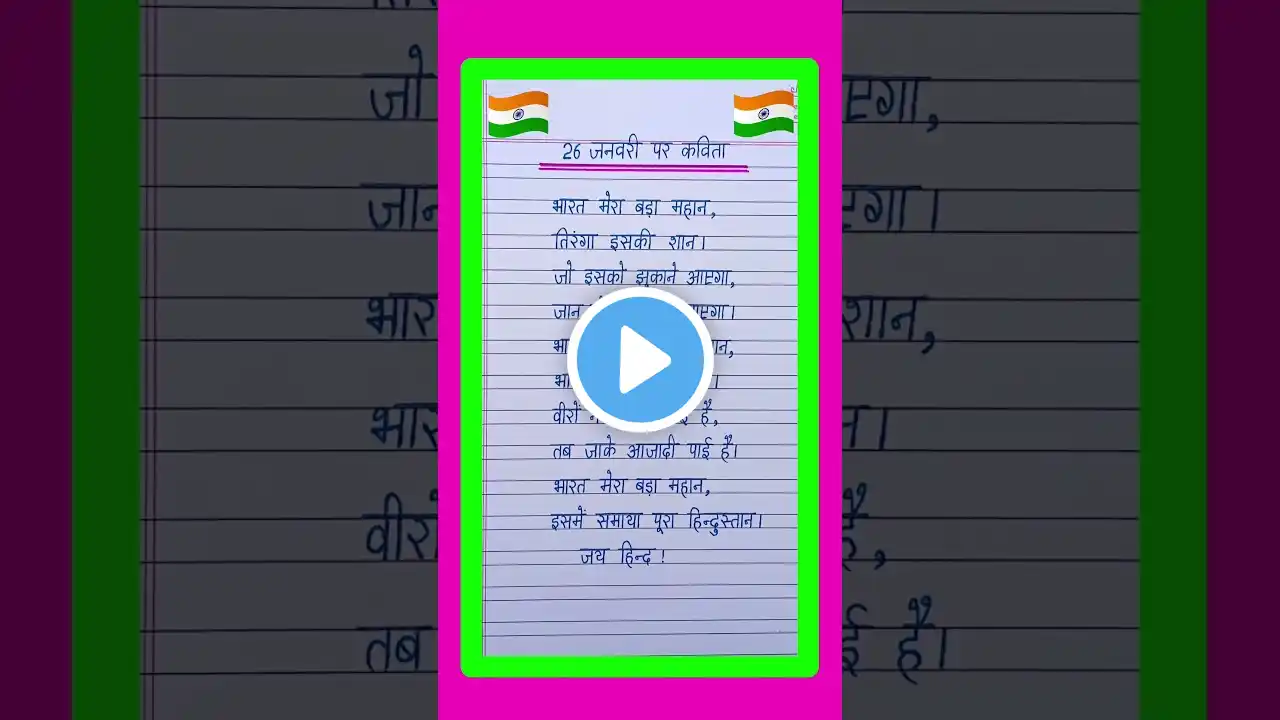 26 जनवरी पर कविता
भारत मेरा बड़ा महान,
तिरंगा इसकी शान।
जो इसको झुकाने आएगा,
जान
वीरों है,
तब जाके आजादी पाई है।
भारत मेरा बड़ा महान,
इसमें समाया पूरा हिन्दुस्तान।
जय हिन्द !